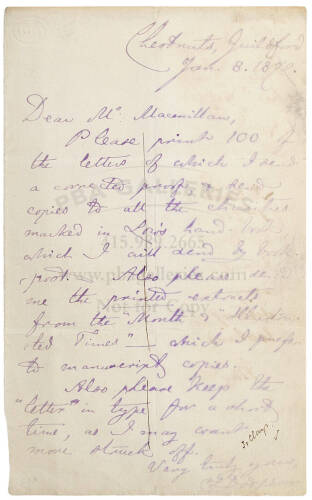 Chestnuts, Guildford
Jan. 8. 1872.
Dear Mr. Macmillan,
Please print 100 of
the letters of which I send
a corrected proof, & send
copies to all the
marked in Low's hand book
which I will send by book-
post. Also please send
me the printed extracts
from the Month &
ted Times" which I prefer
to manuscript copies.
Also please keep the
"letter" in type for a short
time, as I may want
more struck off.
Very truly yours,
PBA GALLERIES
415.989.2665
Not for Copy